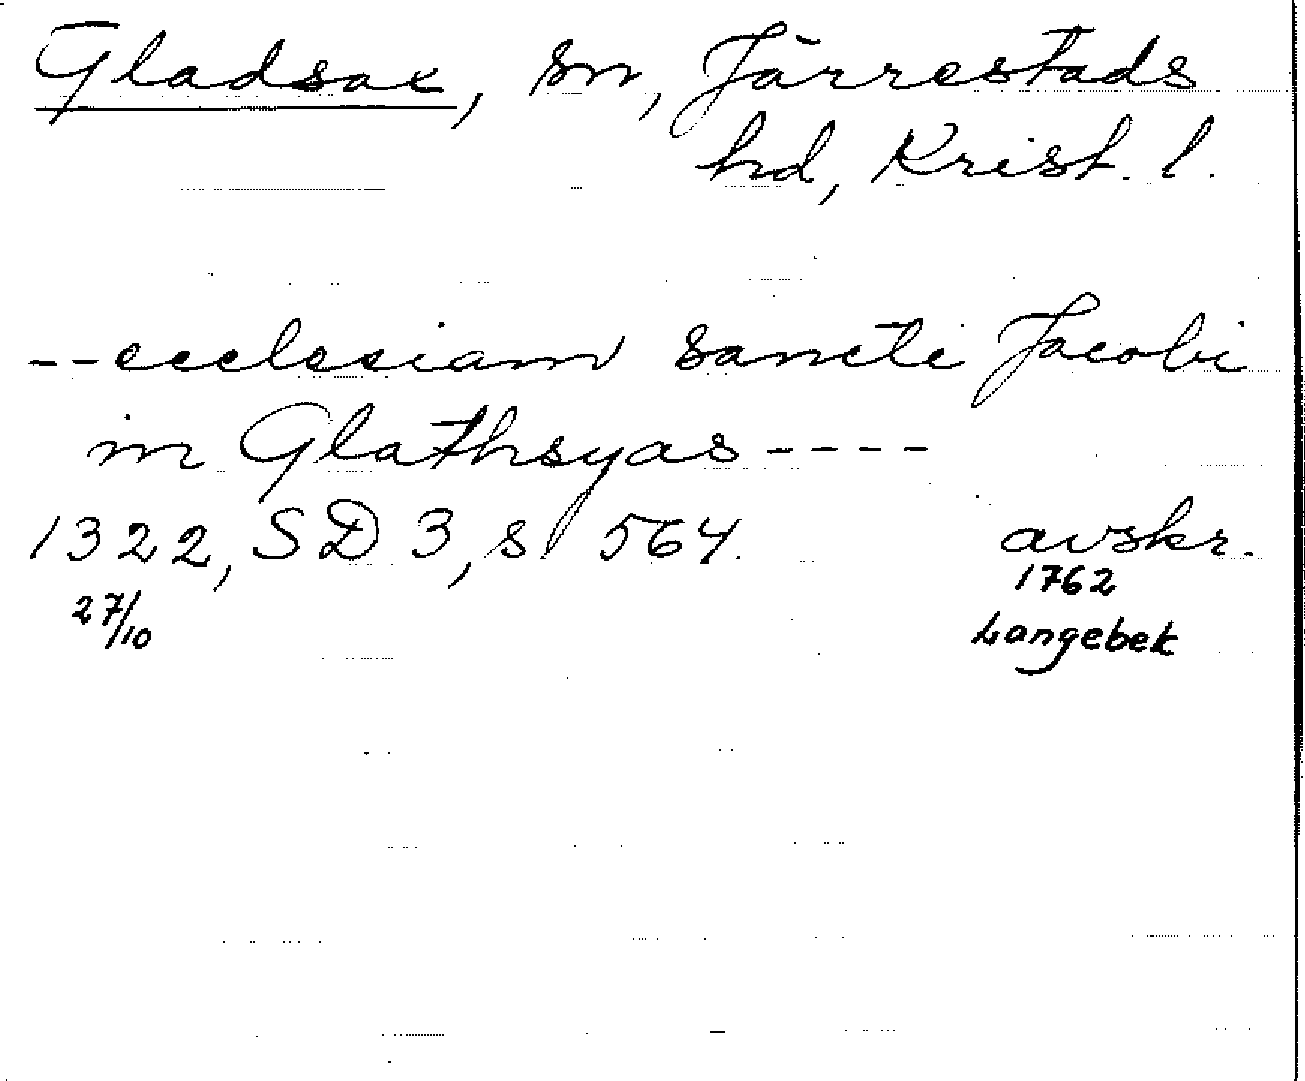 Gladsax, sn, Järrestads
hd, Krist. l.
--ecclesiam sancti Jacobi
in Glathsyas----
1322, SD 3, s 564. avskr.
27/10 1762
Langebek